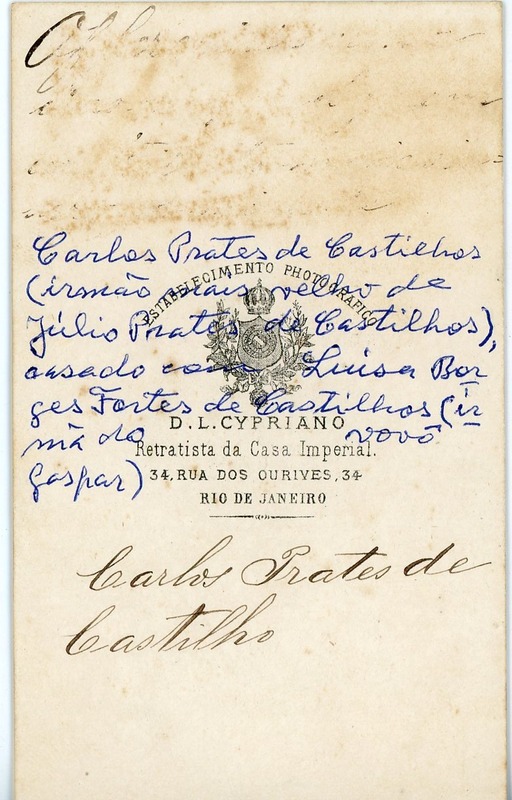 Carlos Prates de Castilhos
(irmão mais velho de
Júlio Prates de Castilhos),
casado com Luisa Bor
ges Fortes de Castilhos (ir
mã do vovô
Gaspar)
ESTABELECIMENTO PHOTOGRAFICO
D. L. CYPRIANO
Retratista da Casa Imperial.
34, RUA DOS OURIVES, 34
RIO DE JANEIRO
Carlos Prates de
Castilho